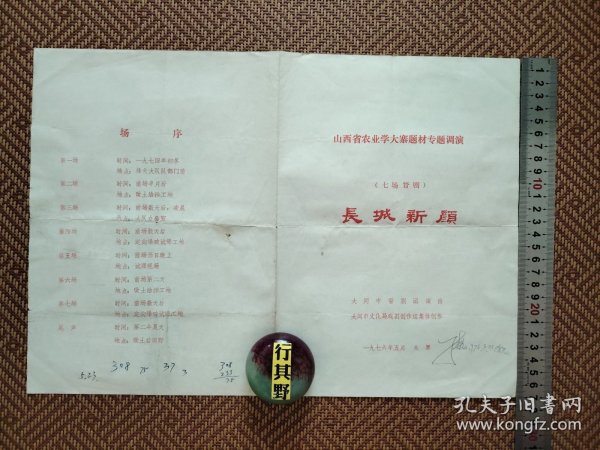 场 序
第一场 时间：一九七四年初冬
地点：烽火大队部门前
第二场 时间：前场半月后
地点：取土垫滩工地
第三场 时间：前场数天后，凌晨
第四场 时间：前场数天后
地点：定向爆破试爆工地
第五场 时间：前场当日晚上
第六场 时间：前场第二天
地点：取土垫滩工地
第七场 时间：前场数天后
地点：定向爆破试验工地
尾 声 时间：第二年夏天
308 75 307 3 308
233
75
山西省农业学大寨题材专题调演
（七场晋剧）
長城新顔
大同市晋剧团演出
大同市文化局戏剧创作组集体创作
一九七六年五月 太原
行其野
孔夫子旧书网
www.kongfz.com
10
20